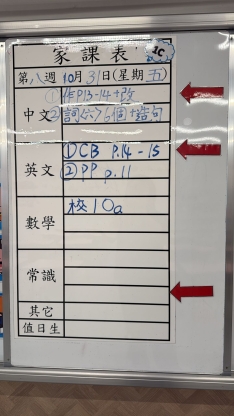 家課表 1C
第八週 10月31日(星期五)
①作P13-14+改
中文 ②詞(六)6個+造句
英文 ①CB P.14-15
②PP P.11
數學 校10a
常識
其它
值日生